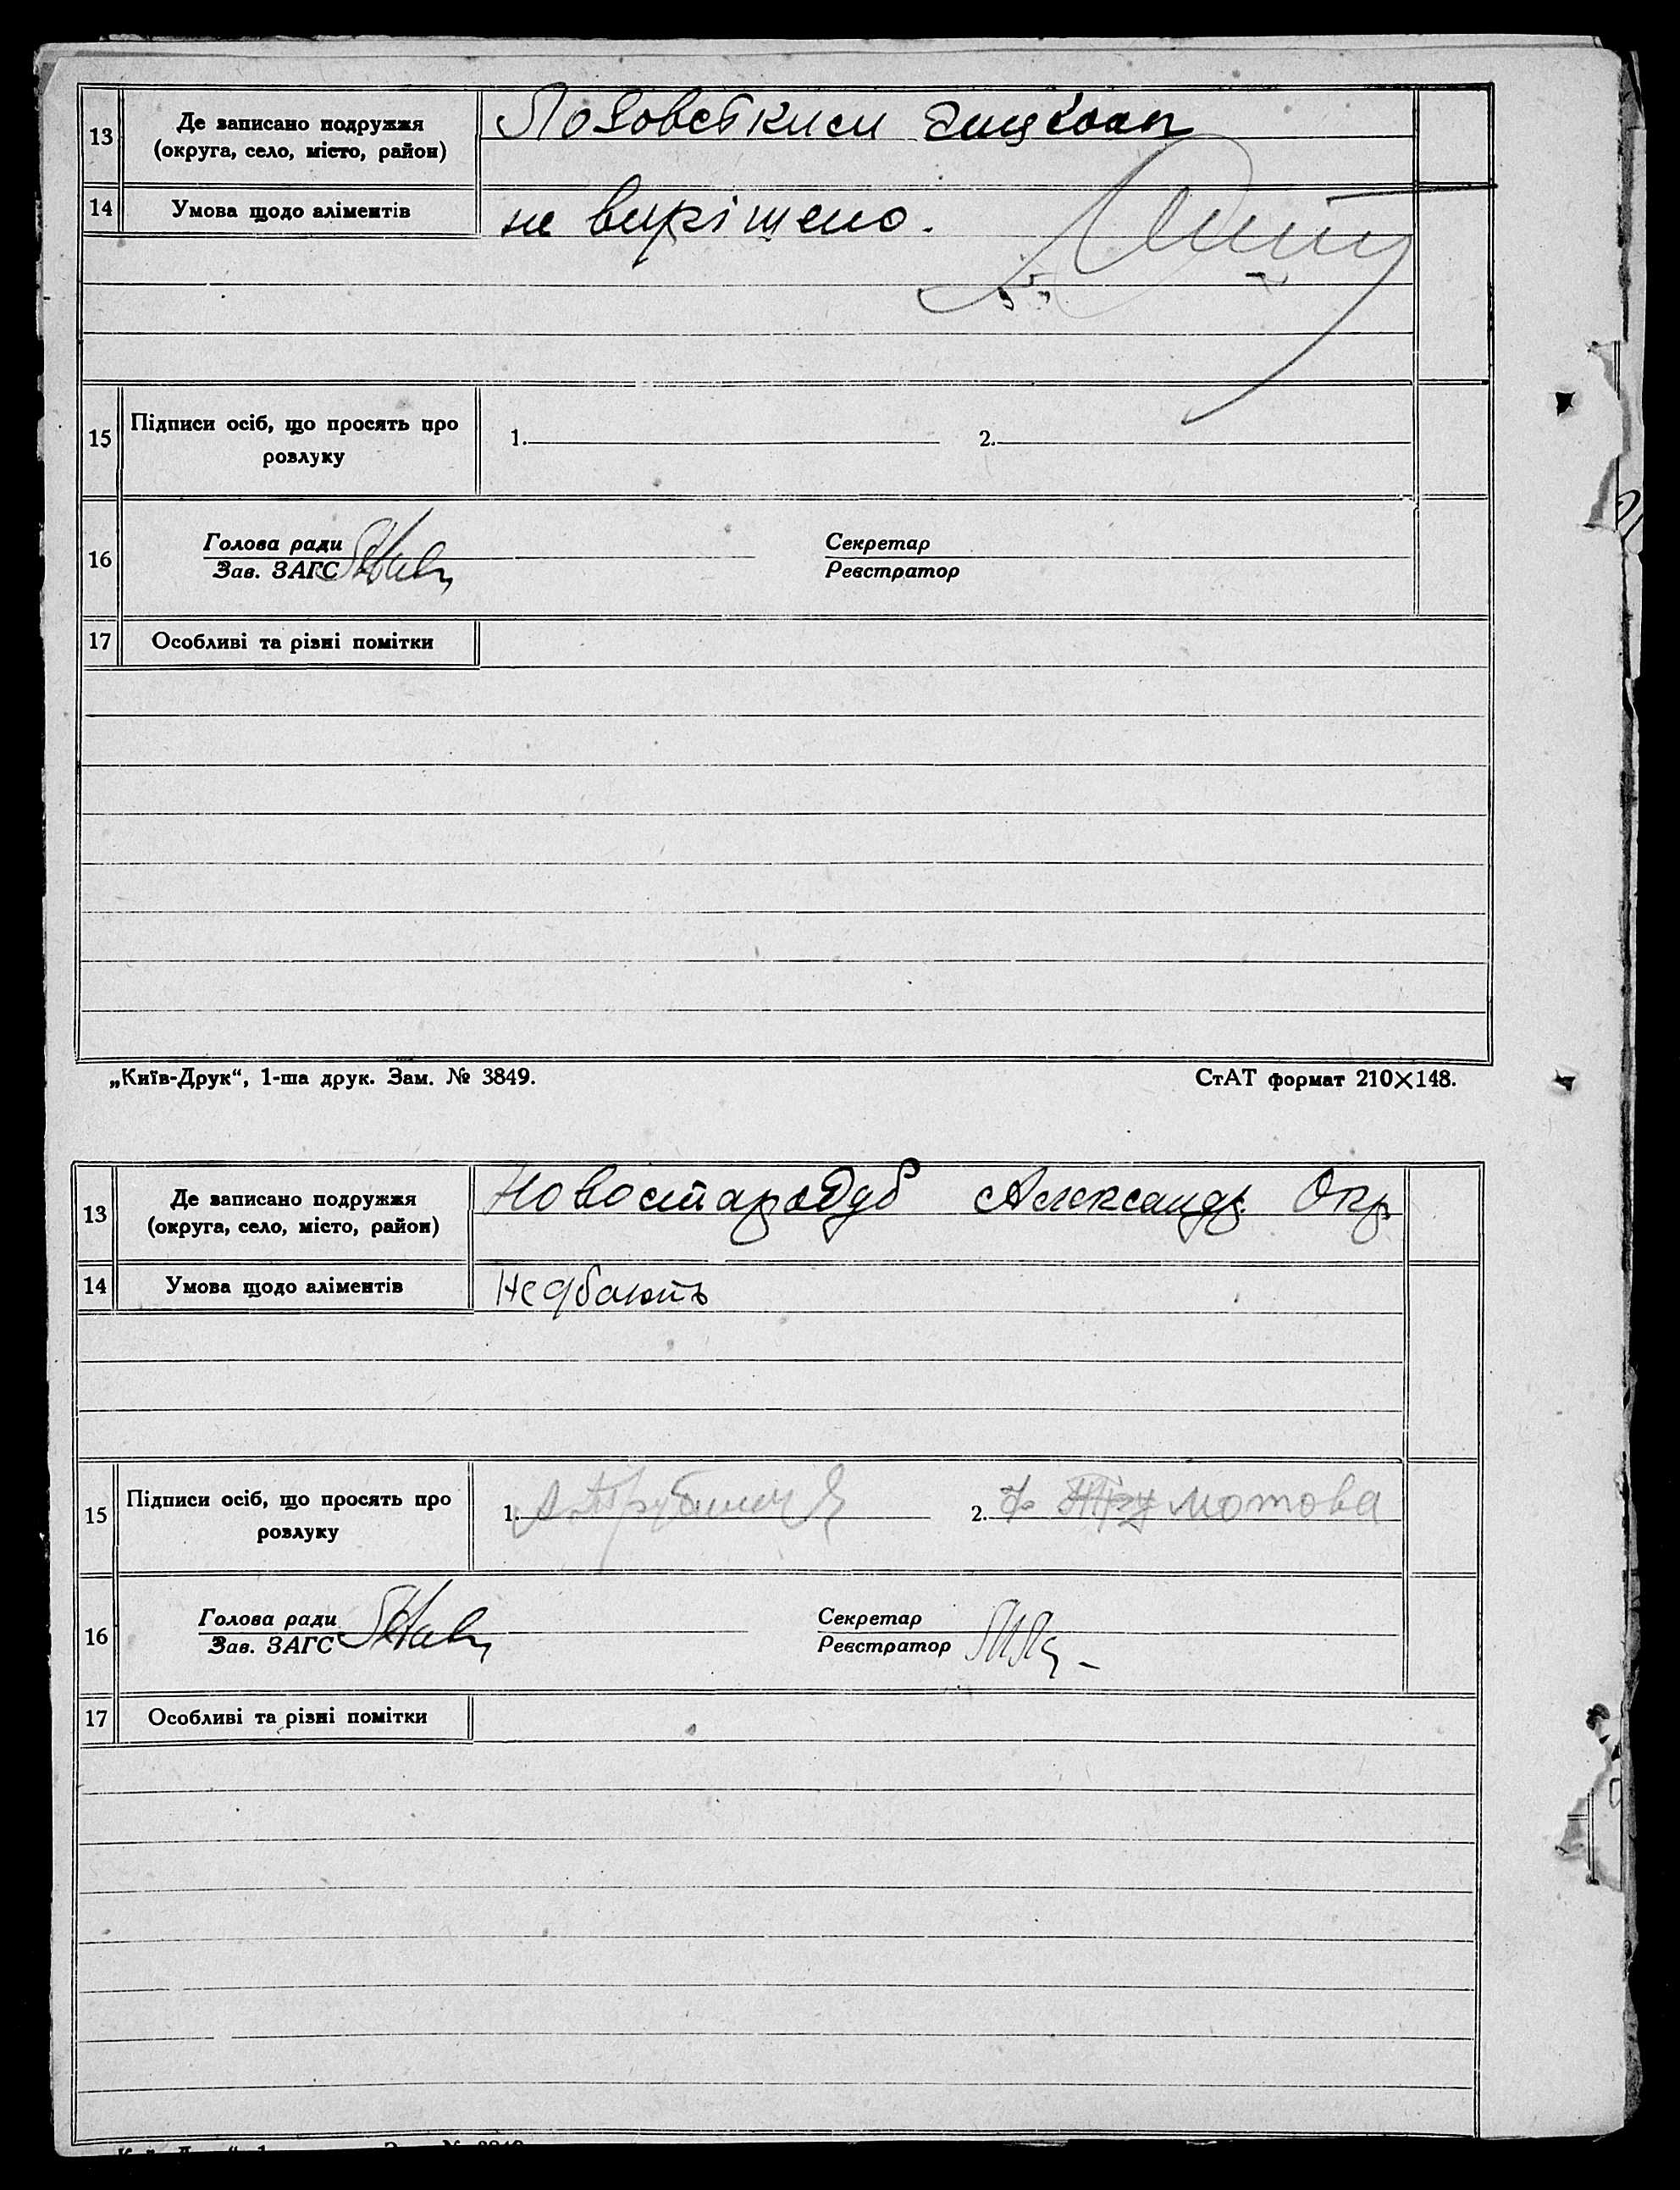 13
Де записано подружжя
(округа, село, місто, район)
14
Умова щодо аліментів
не вирішено.
15
Підписи осіб, що просять про
розлуку
1.
2.
16
Голова ради
Зав. ЗАГС
Секретар
Реєстратор
17
Особливі та різні помітки
„Київ-Друк“, 1-ша друк. Зам. № 3849.
СтАТ формат 210×148.
13
Де записано подружжя
(округа, село, місто, район)
Новостародуб Александр. Окр.
14
Умова щодо аліментів
Недбають
15
Підписи осіб, що просять про
розлуку
1.
2. мотова
16
Голова ради
Зав. ЗАГС
Секретар
Реєстратор
17
Особливі та різні помітки